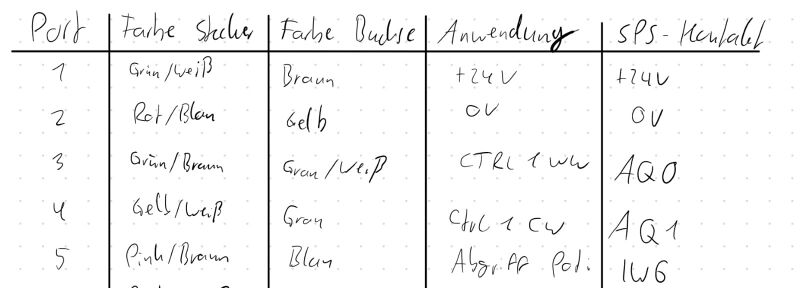 Port Farbe Stecker Farbe Buchse Anwendung SPS-Kontakt
1 Grün/weiß Braun +24V +24V
2 Rot/Blau Gelb 0V 0V
3 Grün/Braun Grau/weiß CTRL 1 WW AQ0
4 Gelb/weiß Grau Ctrl 1 CW AQ1
5 Pink/Braun Blau Abgriff Pot. IW6